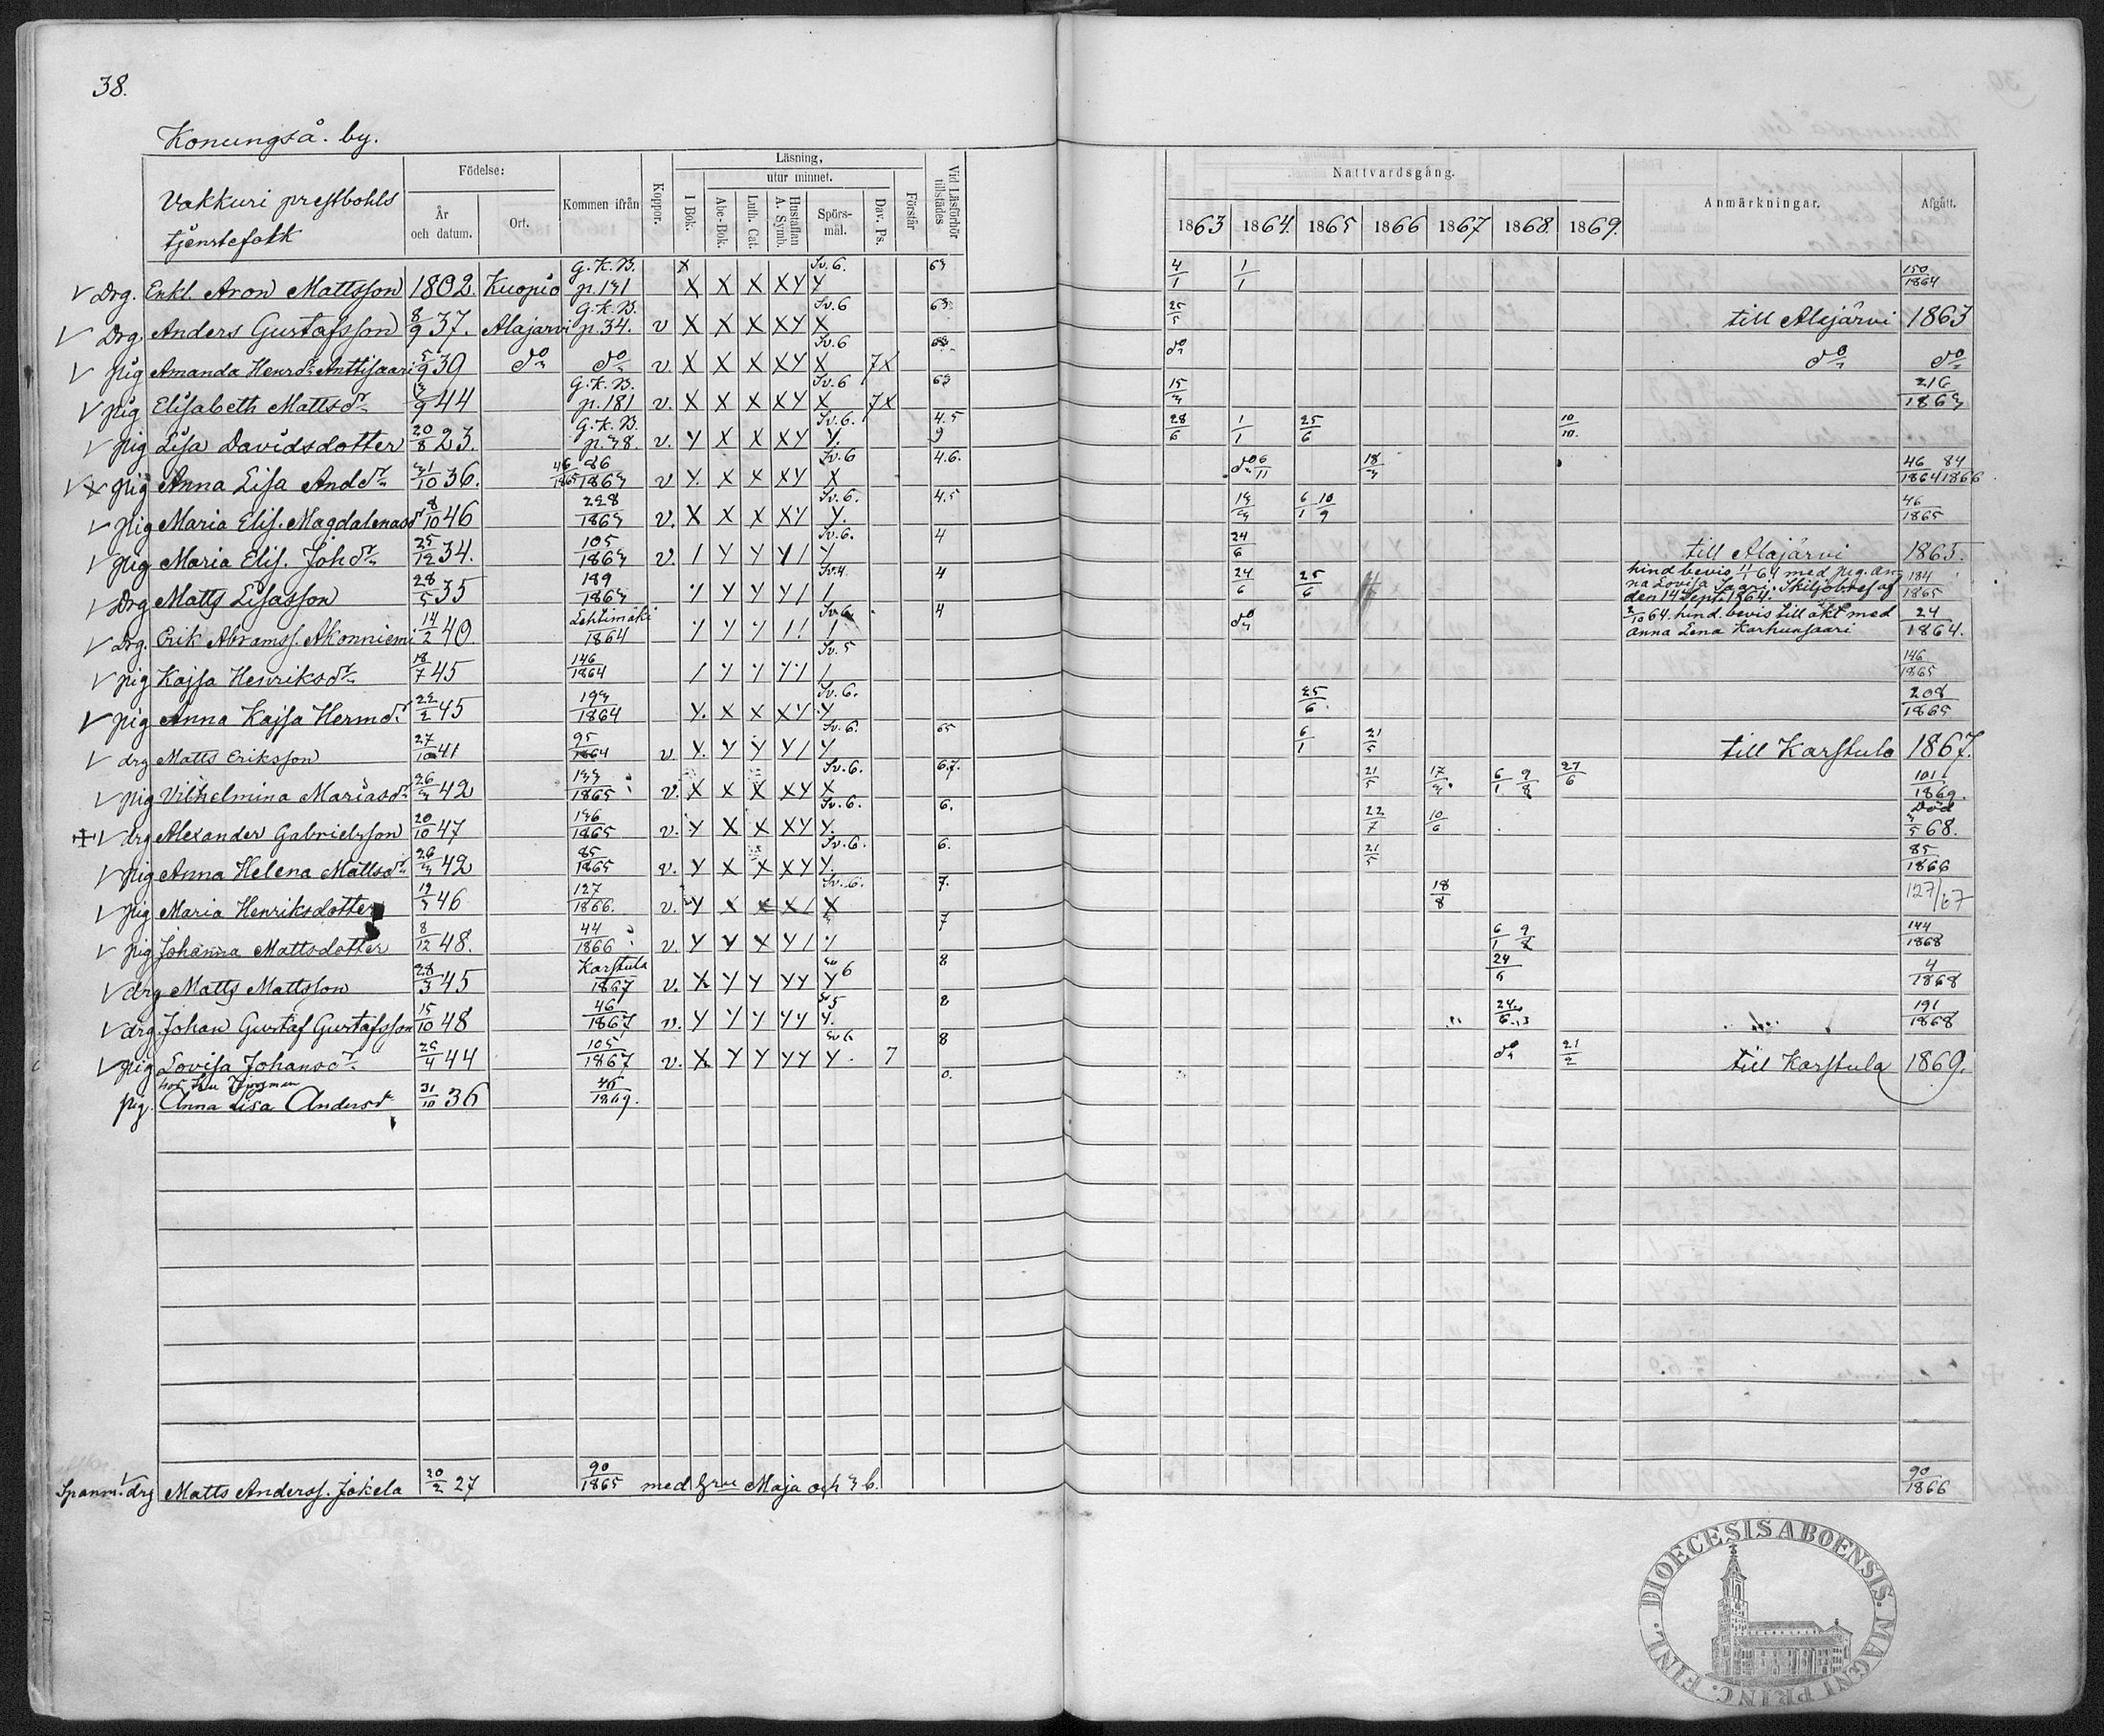 38.
Konungså. by.
Vakkuri prestbohls
tjenstefolk
Födelse:
År
och datum.
Ort.
Kommen ifrån
Koppor.
Läsning,
I Bok.
utur minnet.
Abc-Bok.
Luth. Cat.
Hustaflan
A. Symb.
Spörs-
mål.
Dav. Ps.
Förstår
Vid Läsförhör
tillstädes
Nattvardsgång.
1863 1864. 1865 1866 1867 1868 1869.
Anmärkningar.
Afgått.
√ Drg. Enkl. Aron Mattsson 1802. Kuopio G.K.B. p.131 X X X X X Y Y Sv.6. 63 4/1 1/1 150/1864
√ Drg. Anders Gustafsson 8/9 37. Alajärvi G.K.B. p.34. v X X X X Y X Sv.6 63 25/5 till Alajärvi 1863
√ pig Amanda Henrsdr Anttisaari 5/9 39 do do v. X X X X Y X Sv.6 63 7X do do do
√ pig Elisabeth Mattsdr 13/9 44 G.K.B. p.181 v. X X X X Y X Sv.6 7X 63 15/3 216/1863
√ pig Lisa Davidsdotter 20/8 23. G.K.B. p.38. v. Y X X X Y Y. Sv.6. 4.5 9 28/6 1/1 25/6 10/10.
√ X pig Anna Lisa Anddr 31/10 36. 46/1865 86/1863 v Y. X X X Y X Sv.6 4.6. do 6/11 18/3 46/1864 84/1866
√ pig Maria Elis. Magdalenasdr 8/10 46 228/1863 v. X X X X Y Y. Sv.6. 4.5 13/3 6/1 10/9 46/1865
√ pig Maria Elis. Johdr 25/12 34. 105/1863 v. / Y Y Y / Y Sv.6. 4 24/6 till Alajärvi 1865.
√ Drg Matts Lisasson 28/5 35 189/1863 Y Y Y Y / / Sv.4 4 24/6 25/6 hind bevis 11/1 64 med pig. An-
na Lovisa Saari. Skiljobref af
den 14 Sept. 1864. 184/1865
√ Drg. Erik Abramss. Akonniemi 14/2 40. Lehtimäki 1864 Y Y Y / / / Sv.6 4 do 2/10 64. hind. bevis till äkt med
Anna Lena Karhunsaari 24/1864.
√ pig Kajsa Henriksdr 18/7 45 146/1864 / Y Y Y / / Sv.5 146/1865
√ pig Anna Kajsa Hermdr 22/2 45 193/1864 Y. X X X Y Y Sv.6. 25/6. 208/1865
√ drg Matts Eriksson 27/10 41 95/1864 v. Y. Y Y Y / Y Sv.6. 65 6/1 21/5 till Karstula 1867.
√ pig Vilhelmina Mariasdr 26/3 42 133/1865 v. X X X X Y X Sv.6. 6.7. 21/5 17/3. 6/1 9/8 27/6 101/1869.
√ drg Alexander Gabrielsson 20/10 47 136/1865 v. Y X X X Y Y. Sv.6. 6. 22/7 10/6 Död 3/5 68.
√ pig Anna Helena Mattsdr 26/3 42 85/1865 v. Y X X X Y Y. Sv.6. 6. 21/5 85/1866
√ pig Maria Henriksdotter 19/3 46 127/1866. v. Y X X X / X Sv.6. 7. 18/8 127/67
√ pig Johanna Mattsdotter 8/12 48. 44/1866 v. Y Y X Y / Y 7 6/1 9/8 144/1868
√ drg Matts Mattsson 28/3 45 Karstula 1867 v. X Y Y Y Y Y Sv 6 8 24/6 4/1868
√ drg. Johan Gustaf Gustafsson 15/10 48 46/1867 v. Y Y Y Y Y Y. Sv 5 8 24/6 191/1868
√ pig Lovisa Johansdr 25/4 44 105/1867 v. X Y Y Y Y Y. Sv 6 7 8 do 21/2 till Karstula 1869.
pig. Anna Lisa Andersdr 31/10 36 46/1869. 0.
Spanm. √ drg Matts Anderss. Jokela 20/2 27 90/1865 med hru Maja och 3 b. 90/1866
DIOECESIS ABOENSIS. MAGNI PRINC. FINL.